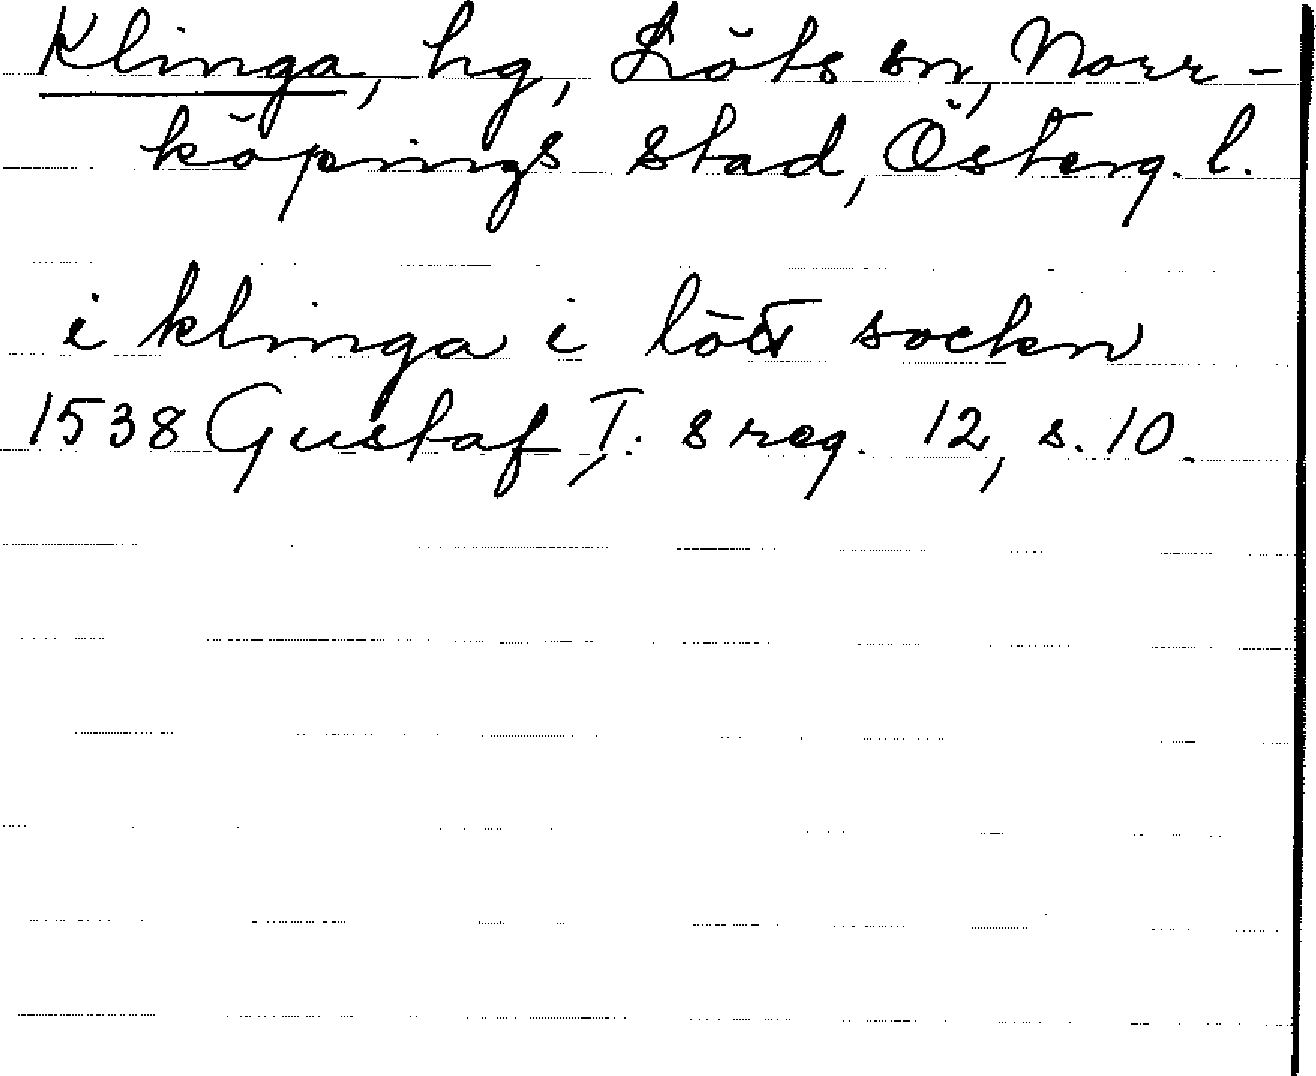 Klinga, hg, Löts sn, Norr-
köpings stad, Österg. l.
i klinga i lött sockn
1538 Gustaf I:s reg. 12, s. 10.